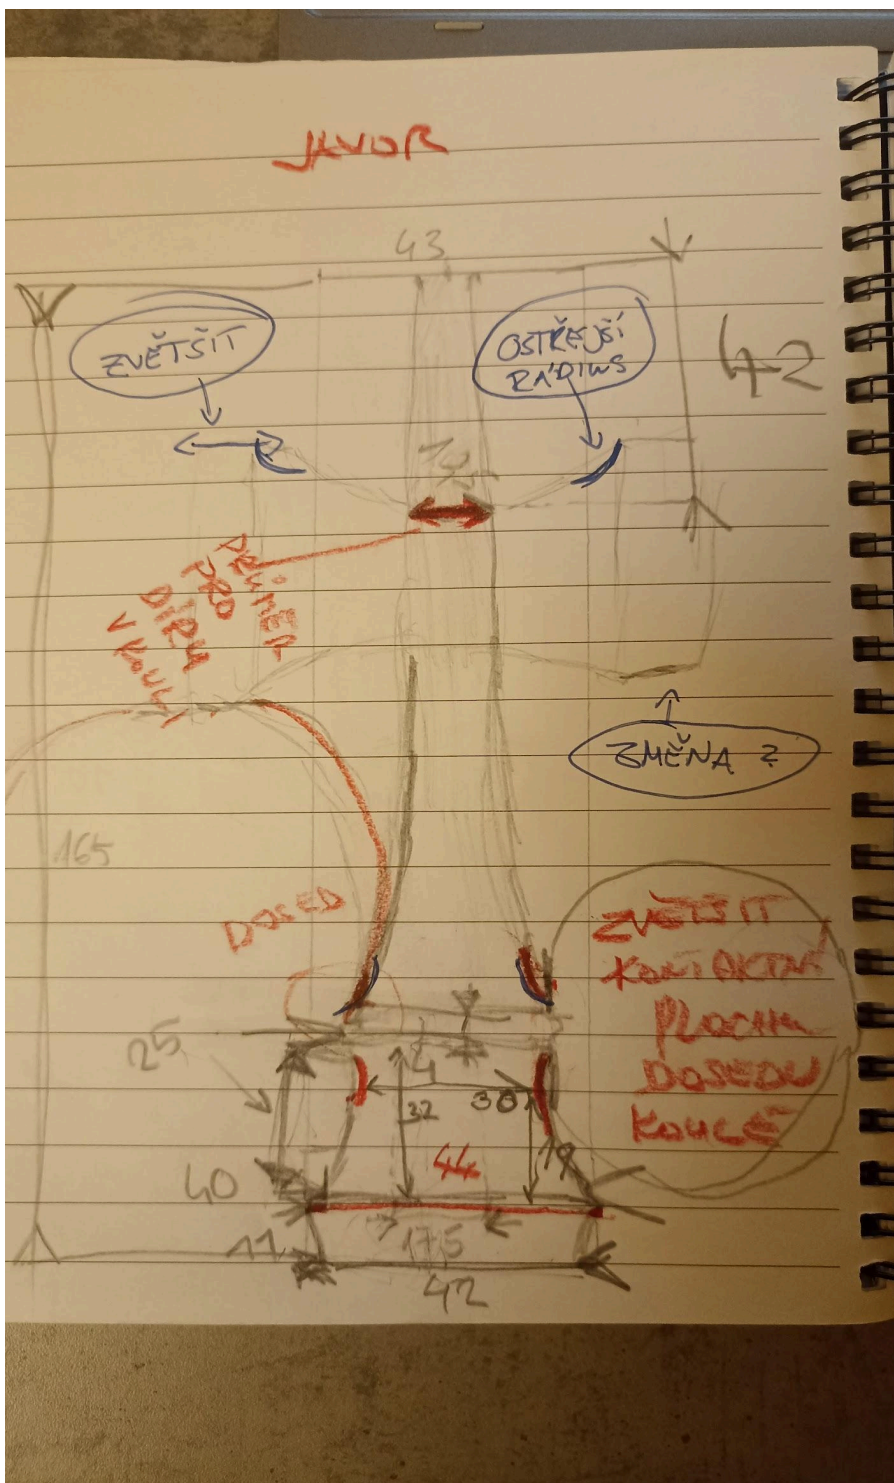 JAVOR
43
ZVĚTŠIT
OSTŘEJŠÍ
RÁDIUS
42
PRŮMĚR
PRO
DÍRU
V KOULI
ZMĚNA ?
165
DOSED
ZVĚTŠIT
KONTAKTNÍ
PLOCHU
DOSEDU
KOULE
25
4
32
30
44
19
40
11
17,5
42